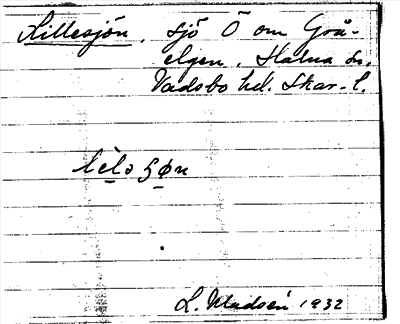 Killesjön, sjö Ö om Grå-
elgen. Halna sn.
Vadsbo hd. Skar. l.
L. Madsén 1932